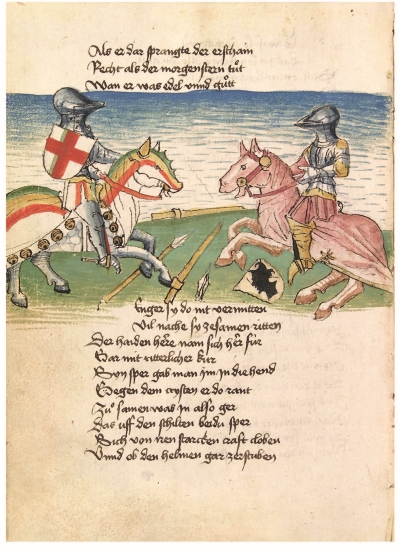 Als er dar sprangte der erschain
Recht als der morgenstern tůt
Wan er was edel vnnd gůtt
Enger sy do nit vermitten
Vil nache sy zesamen ritten
Der haiden herre nam sich her für
Gar mit ritterlicher kür
Syn sper gab man im in die hend
Gegen dem cristen er do rant
Zů samen was in also ger
Das uff den schilten beidu sper
Sich von iren starcken craft cloben
Vnnd ob den helmen gar zerstuben